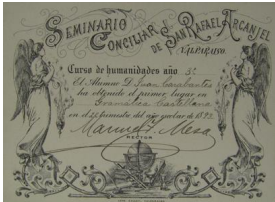 SEMINARIO
CONCILIAR DE SAN RAFAEL ARCANJEL
VALPARAISO.
Curso de humanidades año 3º
El Alumno D. Juan Carabantes
ha obtenido el primer lugar en
Gramática Castellana
en el 2º semestre del año escolar de 1892
Manuel Mesa
RECTOR